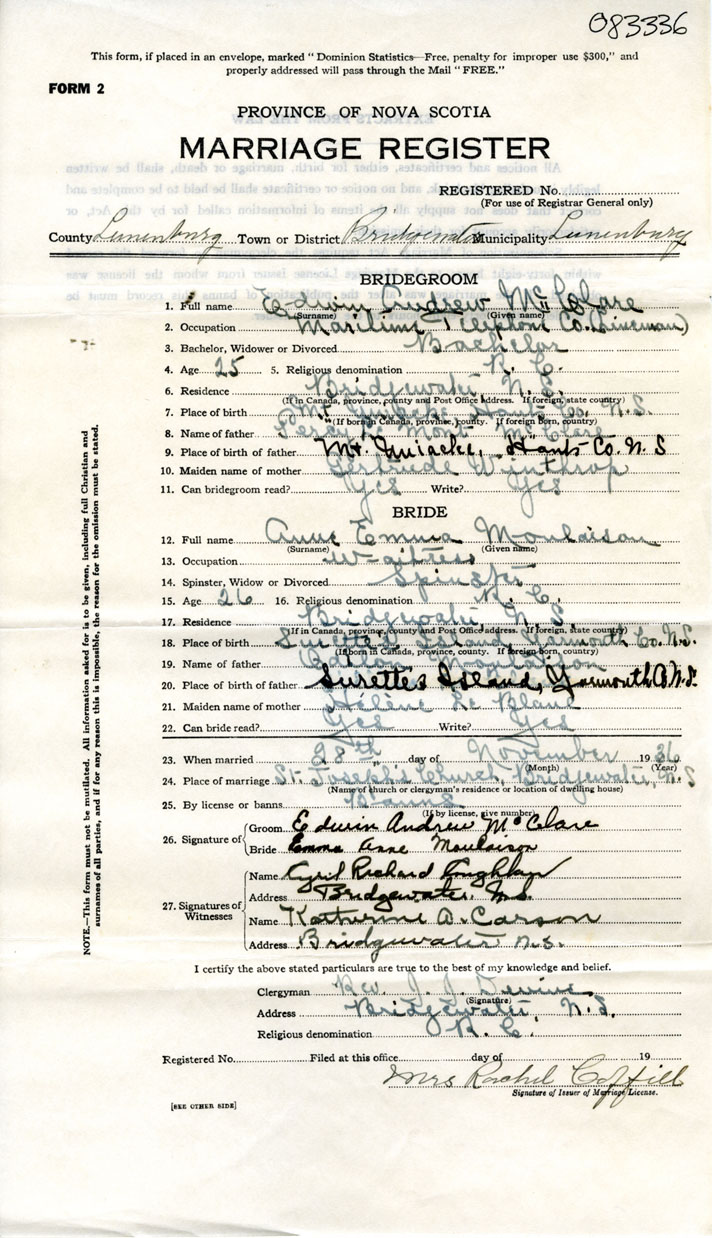 083336
This form, if placed in an envelope, marked "Dominion Statistics—Free, penalty for improper use $300," and
properly addressed will pass through the Mail "FREE."
FORM 2
PROVINCE OF NOVA SCOTIA
MARRIAGE REGISTER
REGISTERED No.
(For use of Registrar General only)
County Lunenburg Town or District Bridgewater Municipality Lunenburg
BRIDEGROOM
1. Full name Edwin Andrew McClare
(Surname) (Given name)
2. Occupation Maritime Telephone Co. (Lineman)
3. Bachelor, Widower or Divorced Bachelor
4. Age 25 5. Religious denomination R. C.
6. Residence Bridgewater N. S.
(If in Canada, province, county and Post Office address. If foreign, state country)
7. Place of birth Mt. Uniacke Hants Co. N. S.
(If born in Canada, province, county. If foreign born, country)
8. Name of father McClare
9. Place of birth of father Mt. Uniacke, Hants Co. N. S
10. Maiden name of mother Gertrude Winthrop
11. Can bridegroom read? Yes Write? Yes
BRIDE
12. Full name Anne Emma Moulaison
(Surname) (Given name)
13. Occupation Waitress
14. Spinster, Widow or Divorced Spinster
15. Age 26 16. Religious denomination R. C.
17. Residence Bridgewater N. S.
(If in Canada, province, county and Post Office address. If foreign, state country)
18. Place of birth Surettes Island, Yarmouth Co. N.S.
(If born in Canada, province, county. If foreign born, country)
19. Name of father Moulaison
20. Place of birth of father Surettes Island, Yarmouth Co N.S.
21. Maiden name of mother Hélène Le Blanc
22. Can bride read? Yes Write? Yes
23. When married 28th day of November 1936
(Month) (Year)
24. Place of marriage St. Joseph's Church, Bridgewater, N. S
(Name of church or clergyman's residence or location of dwelling house)
25. By license or banns Banns
(If by license, give number)
26. Signature of
Groom Edwin Andrew McClare
Bride Emma Anne Moulaison
27. Signatures of Witnesses
Name Cyril Richard
Address Bridgewater, N.S.
Name Katherine A. Carson
Address Bridgewater N.S.
I certify the above stated particulars are true to the best of my knowledge and belief.
Clergyman Rev. J. J. Devine
(Signature)
Address Bridgewater, N.S.
Religious denomination R. C.
Registered No. Filed at this office day of 19
Mrs Rachel Coffill
Signature of Issuer of Marriage License.
[SEE OTHER SIDE]
NOTE.—This form must not be mutilated. All information asked for is to be given, including full Christian and
surnames of all parties, and if for any reason this is impossible, the reason for the omission must be stated.